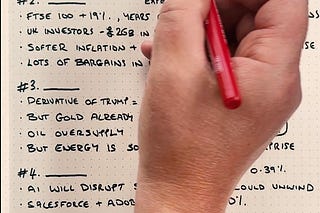 #2.
· FTSE 100 + 19%., YEARS
· UK INVESTORS - $26B IN
· SOFTER INFLATION +
· LOTS OF BARGAINS IN
#3.
· DERIVATIVE OF TRUMP =
· BUT GOLD ALREADY
· OIL OVERSUPPLY
· BUT ENERGY IS SO
#4. 0.39%
· AI WILL DISRUPT COULD UNWIND
· SALESFORCE + ADOB 0%.